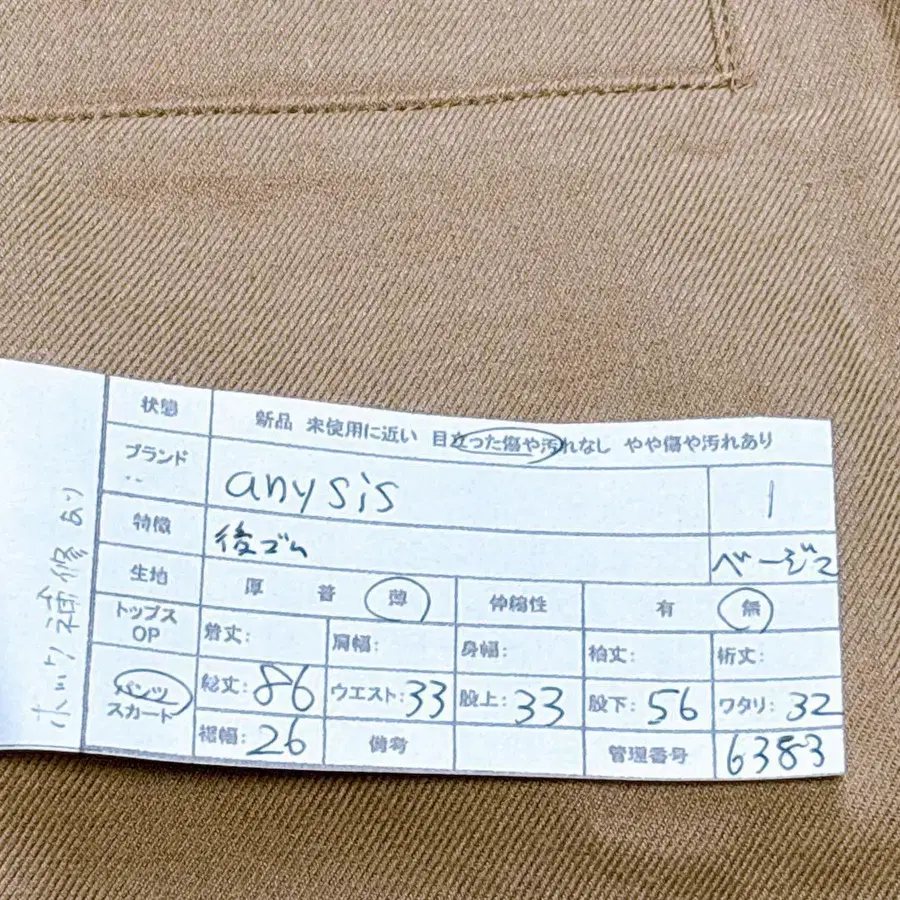 状態 新品 未使用に近い 目立った傷や汚れなし やや傷や汚れあり
ブランド anysis 1
特徴 後ゴム ベージュ
生地 厚 普 薄 伸縮性 有 無
トップス OP 着丈: 肩幅: 身幅: 袖丈: 裄丈:
パンツ スカート 総丈:86 ウエスト:33 股上:33 股下:56 ワタリ:32
裾幅:26 備考 管理番号 6383
ホック補修あり